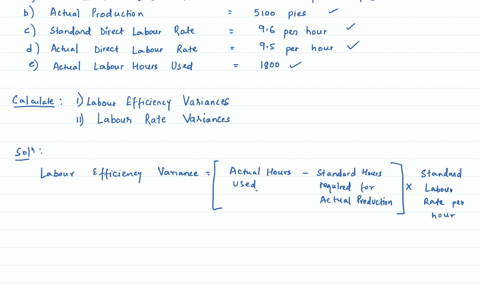 b) Actual Production = 5100 pies
c) Standard Direct Labour Rate = 9.6 per hour
d) Actual Direct Labour Rate = 9.5 per hour
e) Actual Labour Hours Used = 1800
Calculate : i) Labour Efficiency Variances
ii) Labour Rate Variances
Soln :
Labour Efficiency Variance = [ Actual Hours Used - Standard Hours required for Actual Production ] x Standard Labour Rate per hour